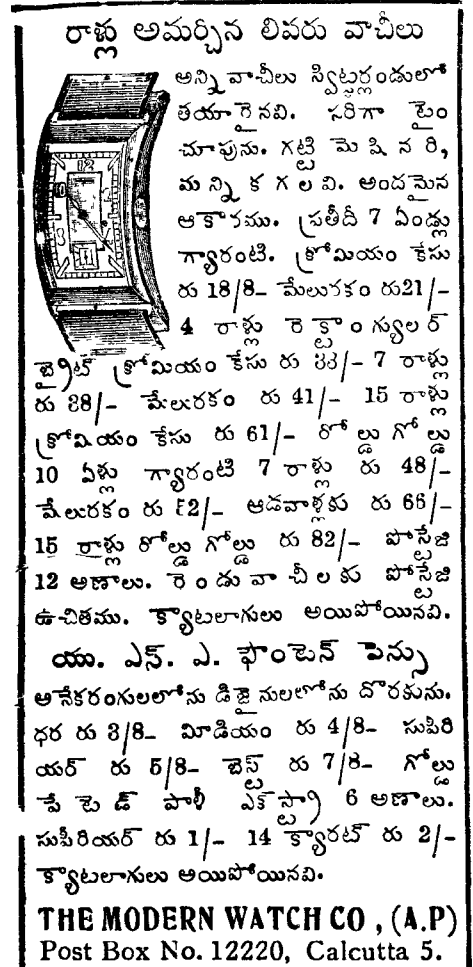 రాళ్లు అమర్చిన లివరు వాచీలు
అన్ని వాచీలు స్విట్జర్లండులో
తయారైనవి. సరిగా టైం
చూపును. గట్టి మెషినరి,
మన్నికగలవి. అందమైన
ఆకారము. ప్రతీదీ 7 ఏండ్లు
గ్యారంటి. క్రోమియం కేసు
రు 18/8– మేలురకం రు21/–
4 రాళ్లు రెక్టాంగ్యులర్
బ్రైట్ క్రోమియం కేసు రు 33/– 7 రాళ్లు
రు 38/– మేలురకం రు 41/– 15 రాళ్లు
క్రోమియం కేసు రు 61/– రోల్డు గోల్డు
10 ఏళ్లు గ్యారంటి 7 రాళ్లు రు 48/–
మేలురకం రు 52/– ఆడవాళ్లకు రు 66/–
15 రాళ్లు రోల్డు గోల్డు రు 82/– పోస్టేజి
12 అణాలు. రెండు వాచీలకు పోస్టేజి
ఉచితము. క్యాటలాగులు అయిపోయినవి.
యు. ఎస్. ఎ. ఫౌంటెన్ పెన్సు
అనేకరంగులలోను డిజైనులలోను దొరకును.
ధర రు 3/8– మీడియం రు 4/8– సుపిరి
యర్ రు 5/8– బెస్ట్ రు 7/8– గోల్డు
పేటెడ్ పాళీ ఎక్స్ట్రా 6 అణాలు.
సుపీరియర్ రు 1/– 14 క్యారట్ రు 2/–
క్యాటలాగులు అయిపోయినవి.
THE MODERN WATCH CO., (A.P)
Post Box No. 12220, Calcutta 5.